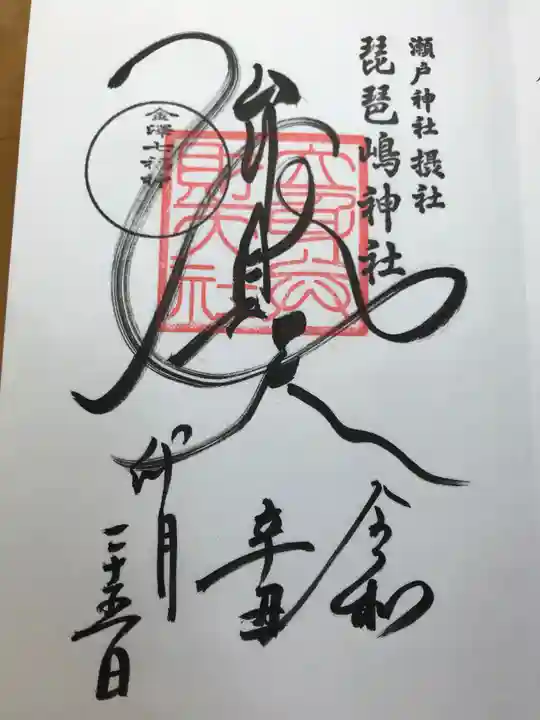 瀬戸神社 摂社
琵琶嶋神社
弁財天
金澤七福神
令和
辛丑
月
二十五日